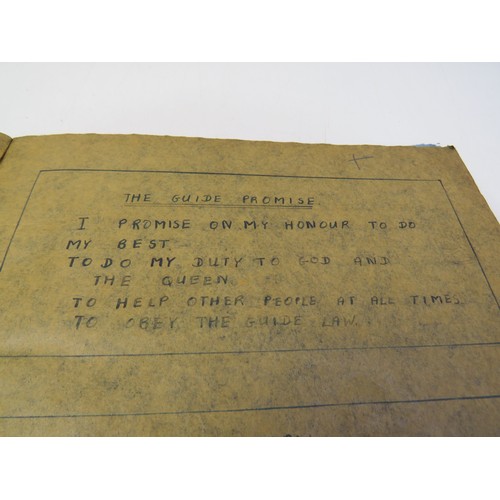 THE GUIDE PROMISE.
I PROMISE ON MY HONOUR TO DO
MY BEST
TO DO MY DUTY TO GOD AND
THE QUEEN.
TO HELP OTHER PEOPLE AT ALL TIMES
TO OBEY THE GUIDE LAW.